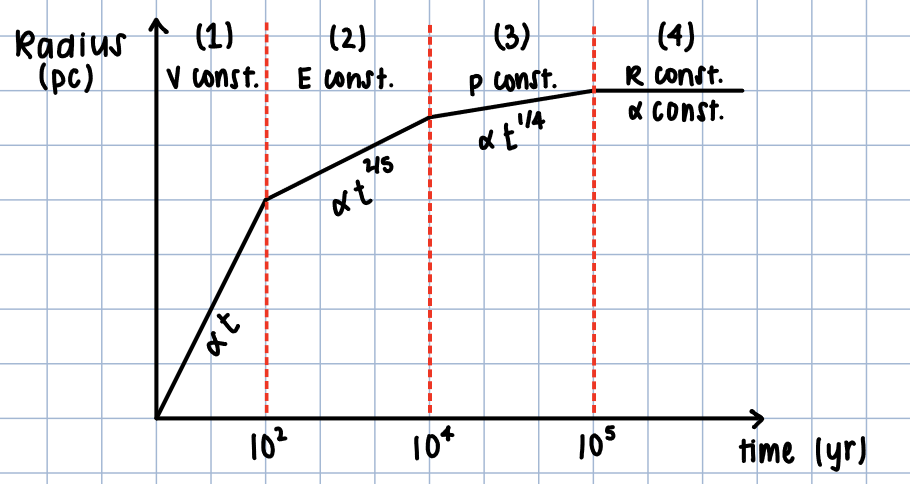 Radius
(pc)
(1)
V const.
(2)
E const.
(3)
p const.
(4)
R const.
α const.
α t
α t^2/5
α t^1/4
10²
10⁴
10⁵
time (yr)